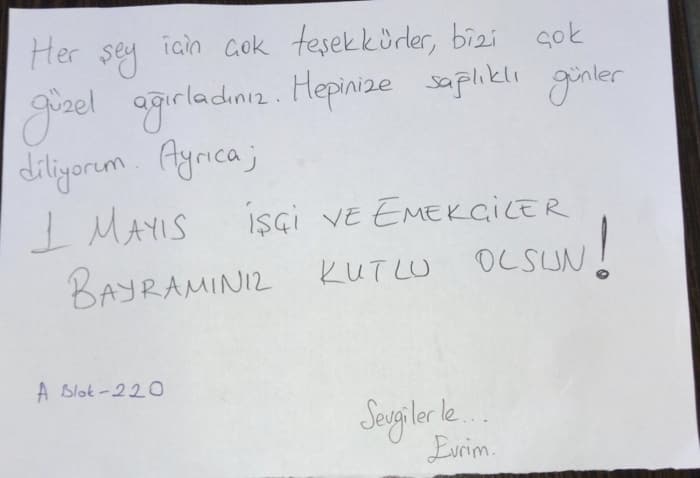 Her şey için çok teşekkürler, bizi çok
güzel ağırladınız. Hepinize sağlıklı günler
diliyorum. Ayrıca;
1 MAYIS İŞÇİ VE EMEKÇİLER
BAYRAMINIZ KUTLU OLSUN!
A Blok-220
Sevgilerle...
Evrim.